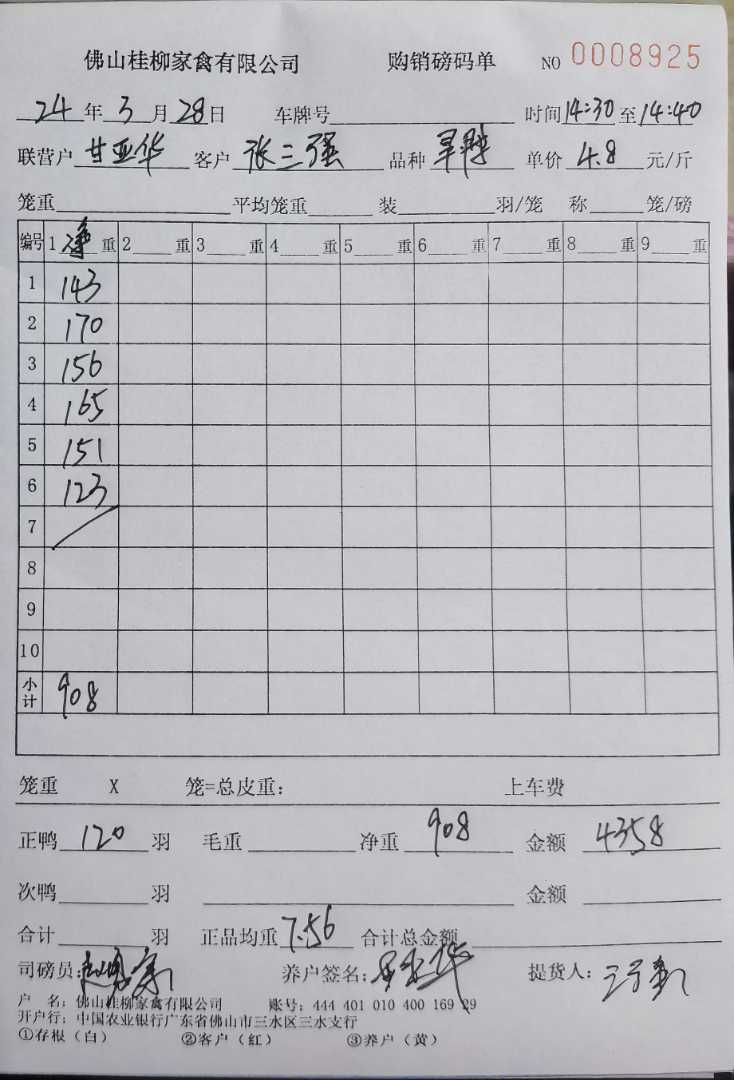 佛山桂柳家禽有限公司 购销磅码单 NO 0008925
24年3月28日 车牌号 时间14:30至14:40
联营户 甘亚华 客户 张三强 品种 单价 4.8 元/斤
笼重 平均笼重 装 羽/笼 称 笼/磅
编号 1净重 2 重 3 重 4 重 5 重 6 重 7 重 8 重 9 重
1 143
2 170
3 156
4 165
5 151
6 123
7
8
9
10
小计 908
笼重 X 笼=总皮重: 上车费
正鸭 120 羽 毛重 净重 908 金额 4358
次鸭 羽 金额
合计 羽 正品均重 7.56 合计总金额
司磅员: 养户签名: 提货人:
户 名: 佛山桂柳家禽有限公司 账号: 444 401 010 400 169 29
开户行: 中国农业银行广东省佛山市三水区三水支行
①存根(白) ②客户(红) ③养户(黄)